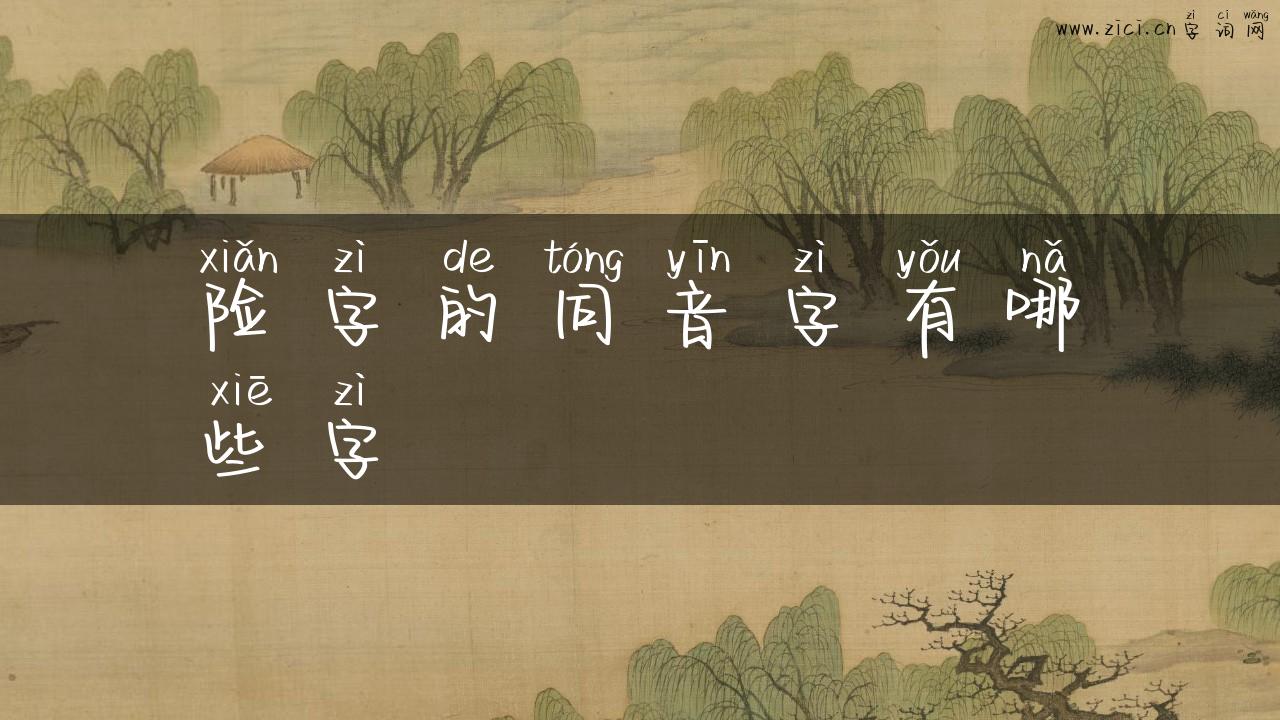 zì cí wǎng
www.zici.cn 字 词 网
xiǎn zì de tóng yīn zì yǒu nǎ
险 字 的 同 音 字 有 哪
xiē zì
些 字